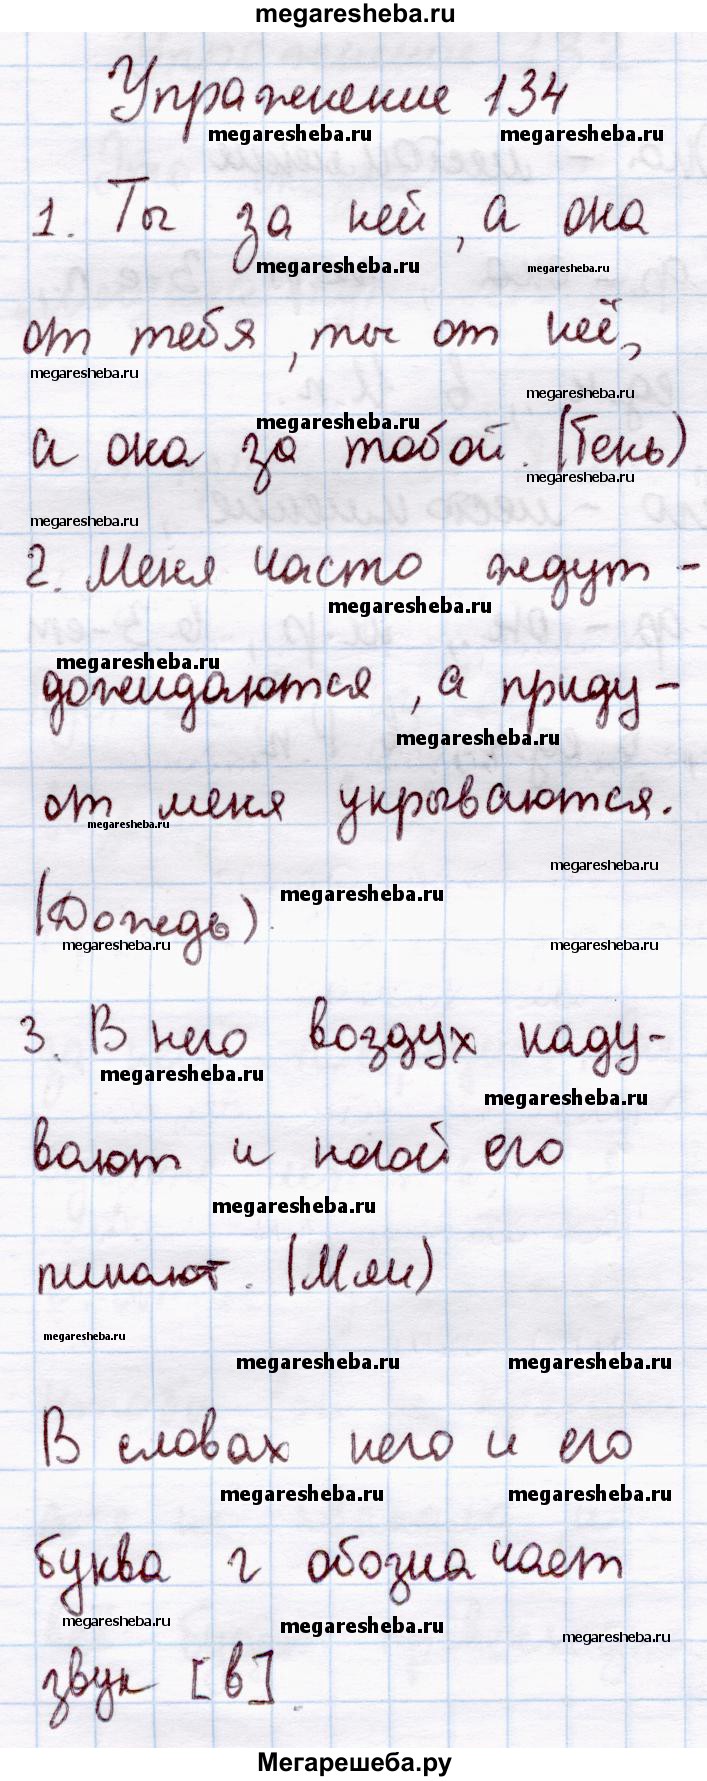 megaresheba.ru
Упражнение 134
megaresheba.ru megaresheba.ru
1. Ты за ней, а она
megaresheba.ru megaresheba.ru
от тебя, ты от неё,
megaresheba.ru megaresheba.ru
megaresheba.ru
а она за тобой. (Тень)
megaresheba.ru
megaresheba.ru
2. Меня часто ждут -
megaresheba.ru
megaresheba.ru
дожидаются, а приду -
megaresheba.ru
от меня укрываются.
megaresheba.ru
megaresheba.ru
megaresheba.ru
(Дождь)
megaresheba.ru megaresheba.ru
3. В него воздух наду-
megaresheba.ru
megaresheba.ru
вают и ногой его
megaresheba.ru
пинают. (Мяч)
megaresheba.ru
megaresheba.ru megaresheba.ru
В словах него и его
megaresheba.ru megaresheba.ru
буква г обозначает
megaresheba.ru megaresheba.ru megaresheba.ru
звук [в].
Мегарешеба.ру